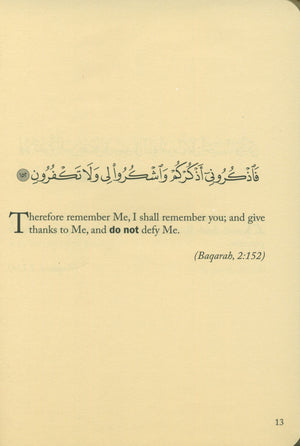 فَٱذْكُرُونِىٓ أَذْكُرْكُمْ وَٱشْكُرُوا۟ لِى وَلَا تَكْفُرُونِ ١٥٢
Therefore remember Me, I shall remember you; and give
thanks to Me, and do not defy Me.
(Baqarah, 2:152)
13